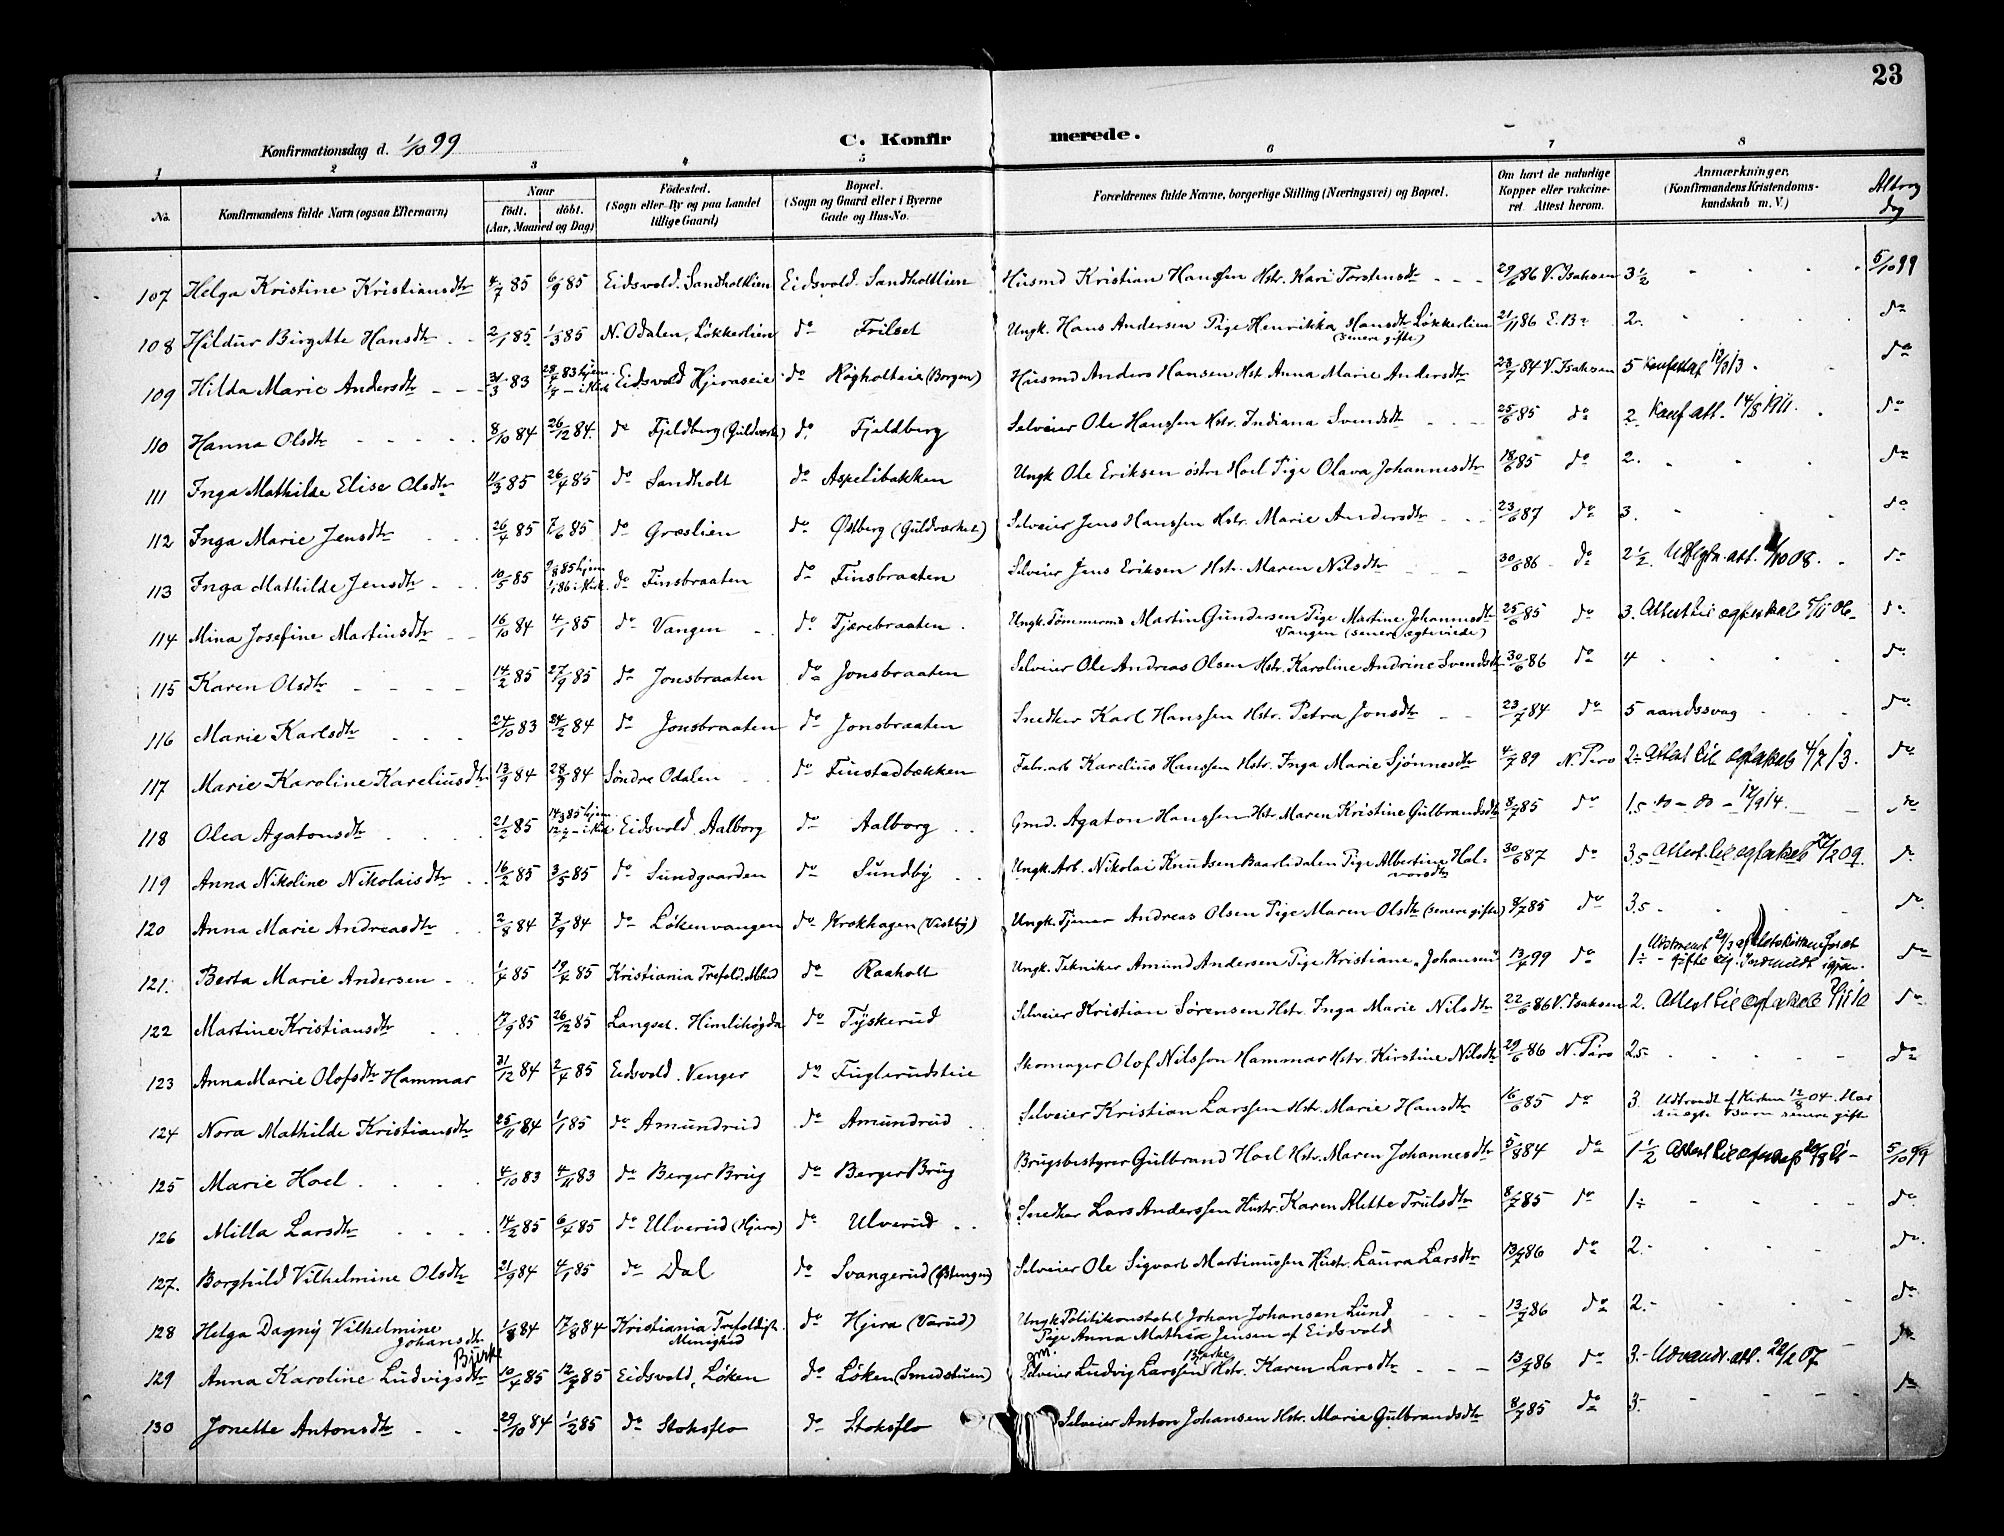 23
Konfirmationsdag d. 1/10 99
C. Konfir merede.
1 2 3 4 5 6 7 8
No. Konfirmandens fulde Navn (ogsaa Efternavn) Naar født. døbt. (Aar, Maaned og Dag) Fødested. (Sogn eller By og paa Landet tillige Gaard) Bopæl. (Sogn og Gaard eller i Byerne Gade og Hus-No. Forældrenes fulde Navne, borgerlige Stilling (Næringsvei) og Bopæl. Om havt de naturlige Kopper eller vakcineret. Attest herom. Anmærkninger, (Konfirmandens Kristendomskundskab m. V.)
107 Helga Kristine Kristiansdtr 4/7 85 6/9 85 Eidsvold. Sandholtlien Eidsvold. Sandholtlien Husmd Kristian Hanssen Hstr. Kari Torstensdtr 29/6 86 V. Isaksen 3 1/2 5/10 99
108 Hildur Birgitte Hansdtr 2/1 85 1/3 85 N. Odalen, Løkkerlien do Frilset Ungk. Hans Andersen Pige Henrikka Hansdtr Løkkerlien (senere gifte) 21/11 86 2. do
109 Hilda Marie Andersdtr 31/3 83 28/4 83 hjem. Eidsvold Hjeraseie do Høgholteie (Borgen) Husmd Anders Hansen Hst. Anna Marie Andersdtr 23/7 84 V. Isaksen 5 do
110 Hanna Olsdtr 8/10 84 26/12 84 do Fjeldberg (Guldverk) do Fjeldberg Selveier Ole Hanssen Hstr. Indiana Svendsdtr 25/6 85 do 2. Konf att. 14/8 1911. do
111 Inga Mathilde Elise Olsdtr 11/3 85 26/4 85 do Sandholt do Aspelibakken Ungk Ole Eriksen østre Hoel Pige Olava Johannesdtr 18/6 85 do 2. do
112 Inga Marie Jensdtr 26/4 85 7/6 85 do Græslien do Østberg (Guldverket) Selveier Jens Hanssen Hstr. Marie Andersdtr 23/6 87 do 3. do
113 Inga Mathilde Jensdtr 10/5 85 9/8 85 hjem 1/1 86 i Kirk do Finsbraaten do Finsbraaten Selveier Jens Eriksen Hstr. Maren Nilsdtr 30/6 86 do 2 1/2 do
114 Mina Josefine Martinsdtr 16/10 84 4/1 85 do Vangen do Tjærebraaten Ungk. Tømmermd Martin Gundersen Pige Martine Johannesdtr Vangen (senere ægteviede) 25/6 85 do 3. Attest til ægteskab 5/11 06 do
115 Karen Olsdtr 14/2 85 27/9 85 do Jonsbraaten do Jonsbraaten Selveier Ole Andreas Olsen Hstr. Karoline Andrine Svendsdtr 30/6 86 do 4 do
116 Marie Karlsdtr 24/10 83 24/2 84 do Jonsbraaten do Jonsbraaten Snedker Karl Hanssen Hstr. Petra Jonsdtr 23/7 84 do 5 aandssvag do
117 Marie Karoline Kareliusdtr 13/9 84 28/9 84 Søndre Odalen do Finstadbækken Fabr.arb Karelius Hanssen Hstr. Inga Marie Sjønnesdtr 4/7 89 N. Piro 2 Attest til ægteskab 4/7 13. do
118 Olea Agatonsdtr 21/2 85 14/3 85 hjem Eidsvold Aalborg do Aalborg Gmd. Agaton Hanssen Hstr Maren Kristine Gulbrandsdtr 8/7 85 do 1.5 do do 12/9 14. do
119 Anna Nikoline Nikolaisdtr 16/2 85 3/5 85 do Sundgaarden do Sundby Ungk. Arb. Nikolai Knudsen Baarlidalen Pige Albertine Halvorsdtr 30/6 87 do 3.5 Attest til ægteskab 27/2 09. do
120 Anna Marie Andreasdtr 2/8 84 7/9 84 do Løkenvangen do Krokhagen (Visthj) Ungk. Tjener Andreas Olsen Pige Maren Olsdtr (senere gifte) 8/7 85 do 3.5 do
121. Berta Marie Andersen 1/4 85 19/4 85 Kristiania Trefold. Mhed do Raaholt Ungk. Tekniker Amund Andersen Pige Kristiane Johansen 13/4 99 do 1 do
122 Martine Kristiansdtr 17/9 85 26/12 85 Langset. Himlihøgda do Tyskerud Selveier Kristian Sørensen Hstr. Inga Marie Nilsdtr 22/6 86 V. Isaksen 2. Attest til ægteskab do
123 Anna Marie Olofsdtr Hammar 31/12 84 2/4 85 Eidsvold. Venger do Fuglerudsteie Skomager Olof Nilsson Hammar Hstr. Kirstine Nilsdtr 29/6 86 N. Piro 2.5 do
124 Nora Mathilde Kristiansdtr 25/11 84 1/1 85 do Amundrud do Amundrud Selveier Kristian Larssen Hstr. Marie Hansdtr 16/6 85 do 3 Udtraadt af Kirken 12/9 04.
125 Marie Hoel 4/10 83 4/11 83 do Berger Brug do Berger Brug Brugsbestyrer Gulbrand Hoel Hstr. Maren Johannesdtr 5/8 84 do 1 1/2 5/10 99
126 Milla Larsdtr 14/2 85 6/4 85 do Ulverud (Hjera) do Ulverud Snedker Lars Anderssen Hustr. Karen Alette Trulsdtr 8/7 85 do 1 do
127. Borghild Vilhelmine Olsdtr 21/9 84 4/1 85 do Dal do Svangerud (Østengen) Selveier Ole Sigvart Martinussen Hustr. Laura Larsdtr 13/7 86 do 2. do
128 Helga Dagny Vilhelmine Johansdtr 1/8 84 17/8 84 Kristiania Trefoldigh. Menighed do Hjera (Varud) Ungk Politikonstabel Johan Johansen Lund Pige Anna Mathea Jensen af Eidsvold 13/7 86 do 2. do
129 Anna Karoline Ludvigsdtr Bjerke 10/4 85 12/7 85 Eidsvold, Løken do Løken (Smedstuen) Selveier Ludvig Larssen Bjerke Hstr. Karen Larsdtr 13/7 86 do 3. Udvandr. att. 22/2 07 do
130 Jonette Antonsdtr 29/10 84 1/2 85 do Stoksflo do Stoksflo Selveier Anton Johansen Hstr. Marie Gulbrandsdtr 8/7 85 do 3 do